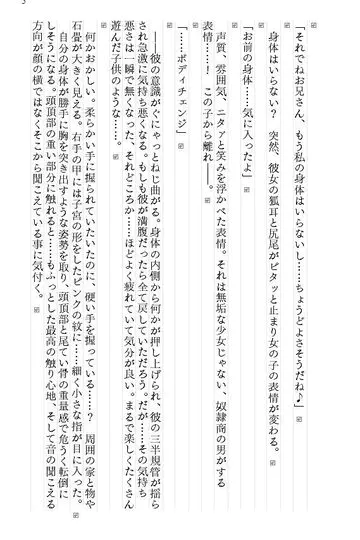 「それでねお兄さん、もう私の身体はいらないし……ちょうどよさそうだね♪」
身体はいらない？　突然、彼女の狐耳と尻尾がピタッと止まり女の子の表情が変わる。
「お前の身体……気に入ったよ」
声質、雰囲気、ニタァと笑みを浮かべた表情。それは無垢な少女じゃない、奴隷商の男がする
表情……！　この子から離れ――。
「……ボディチェンジ」
――彼の意識がぐにゃっとねじ曲がる。身体の内側から何かが押し上げられ、彼の三半規管が揺ら
され急激に気持ち悪くなる。もしも彼が満腹だったら全て戻していただろう。だが……その気持ち
悪さは一瞬で無くなった、それどころか……ほどよく疲れていて気分が良い。まるで楽しくたくさん
遊んだ子供のような……。
何かおかしい。柔らかい手に握られていたいたのに、硬い手を握っている……？　周囲の家と物や
石畳が大きく見える。右手の甲には子宮の形をしたピンクの紋……細く小さな指が目に入った。
自分の身体が勝手に胸を突き出すような姿勢を取り、頭頂部と尾てい骨の重量感で危うく転倒に
しそうになる。頭頂部の重い部分に触れると……もふっとした最高の触り心地、そして音の聞こえる
方向が顔の横ではなくそこから聞こえている事に気付く。